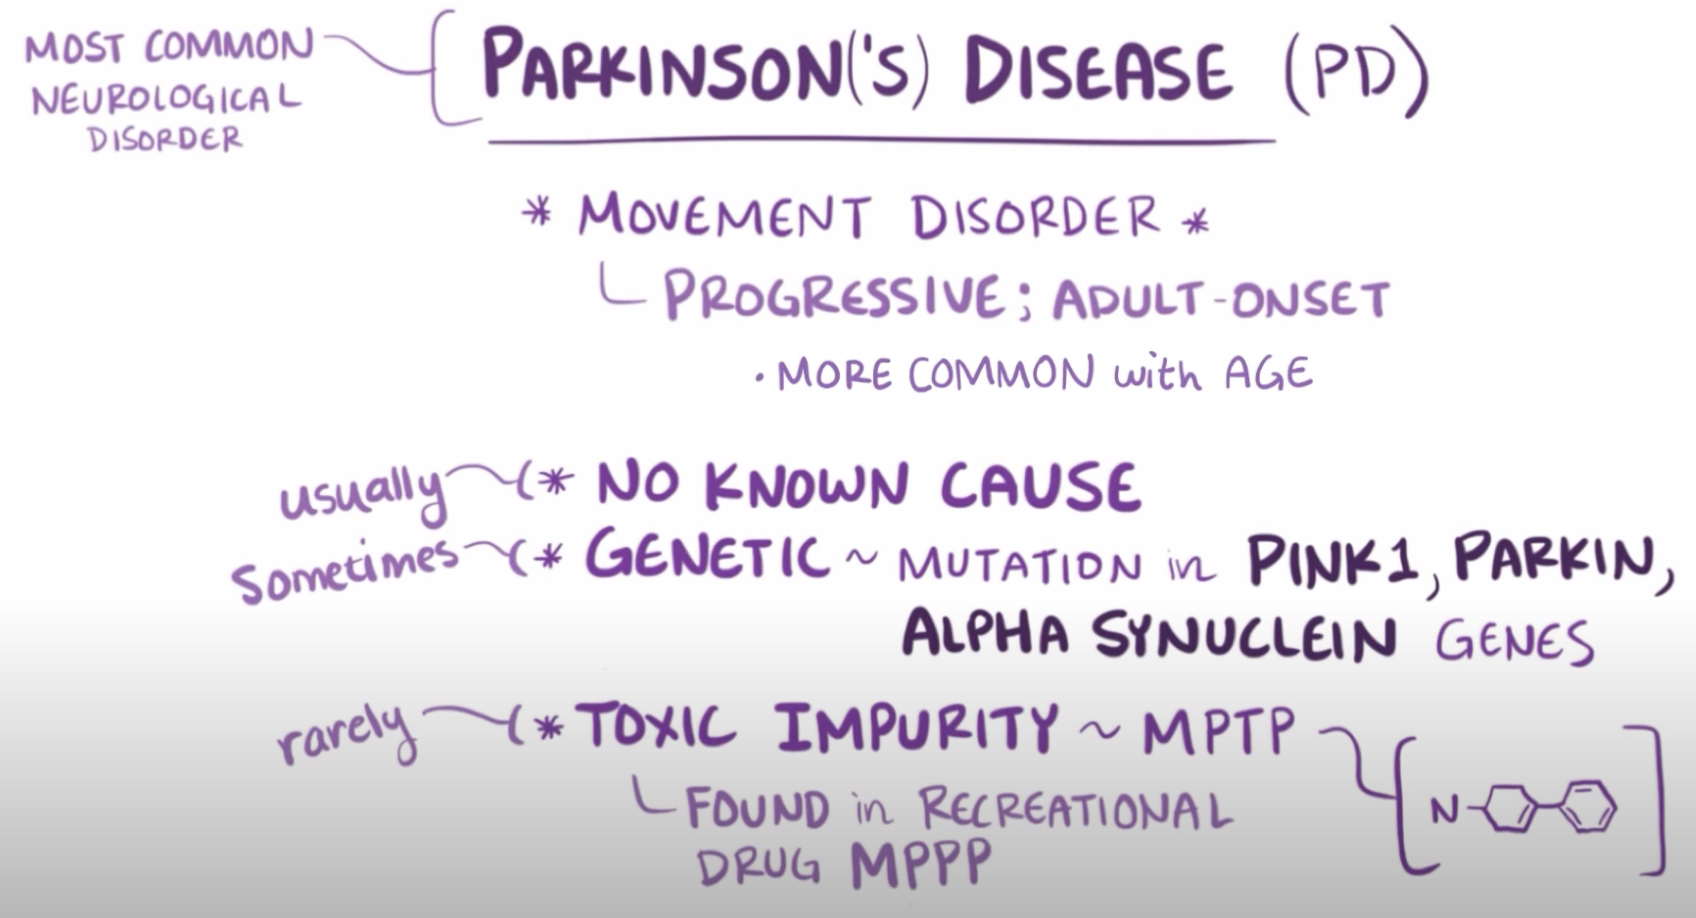 MOST COMMON
NEUROLOGICAL
DISORDER
PARKINSON('S) DISEASE (PD)
* MOVEMENT DISORDER *
PROGRESSIVE; ADULT-ONSET
· MORE COMMON with AGE
usually (* NO KNOWN CAUSE
Sometimes (* GENETIC ~ MUTATION in PINK1, PARKIN,
ALPHA SYNUCLEIN GENES
rarely (* TOXIC IMPURITY ~ MPTP
FOUND in RECREATIONAL
DRUG MPPP
N